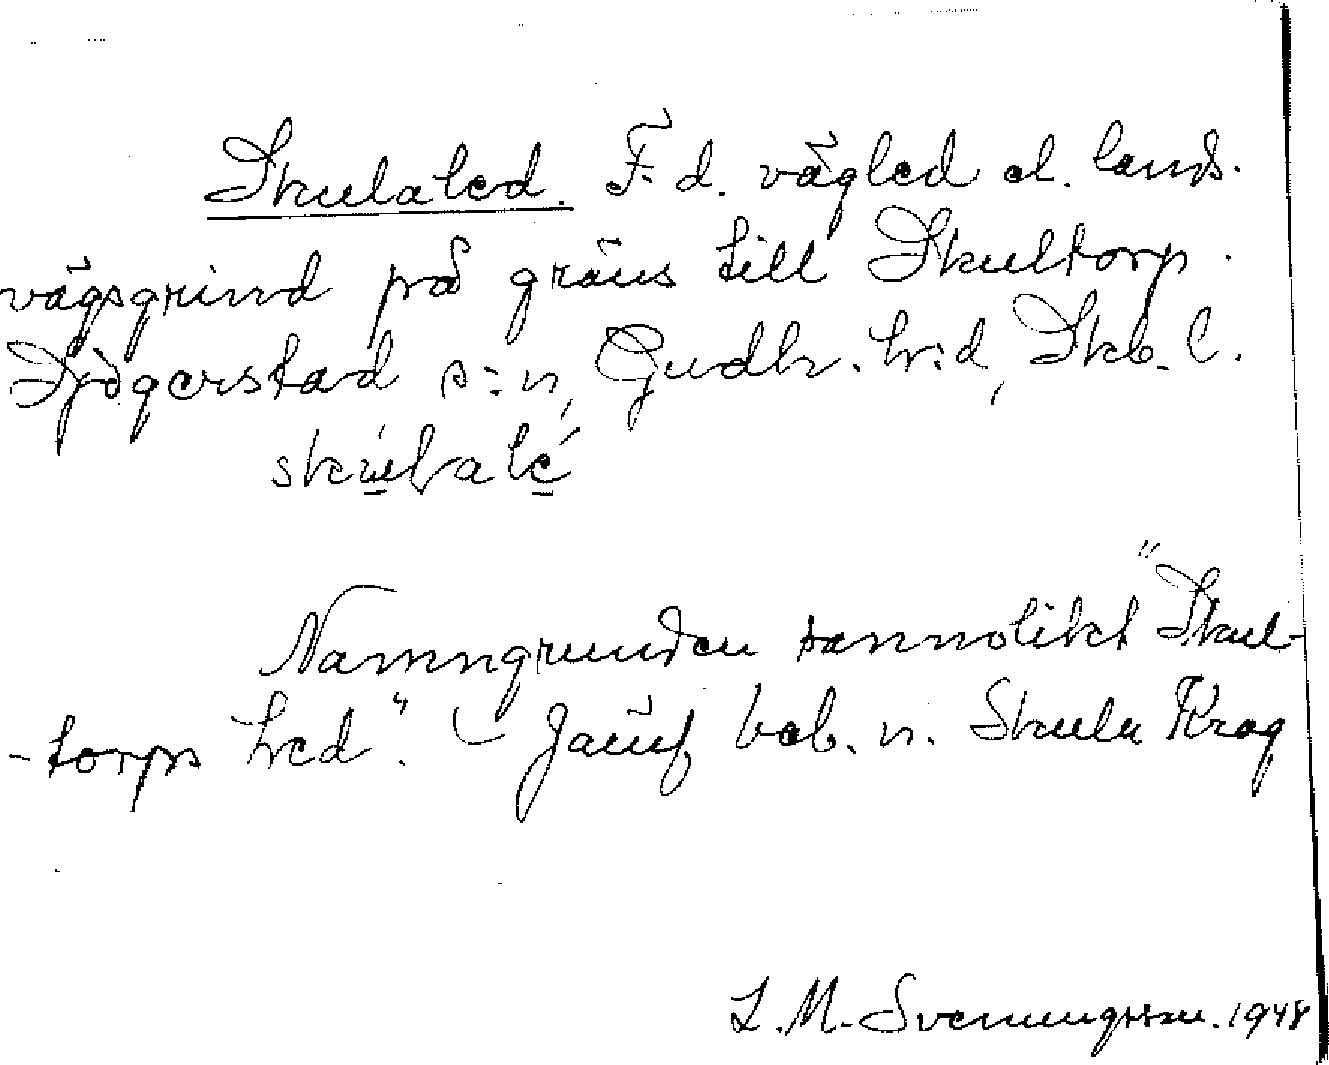 Skulaled. F. d. vägled el. lands-
vägsgrind på gräns till Skultorp.
Sjögerstad s:n, Gudh. h:d, Skb. l.
Namngrunden sannolikt "Skul-
-torps led". Jämf. beb. n. Skula Krog
L. M. Svenungsson. 1948